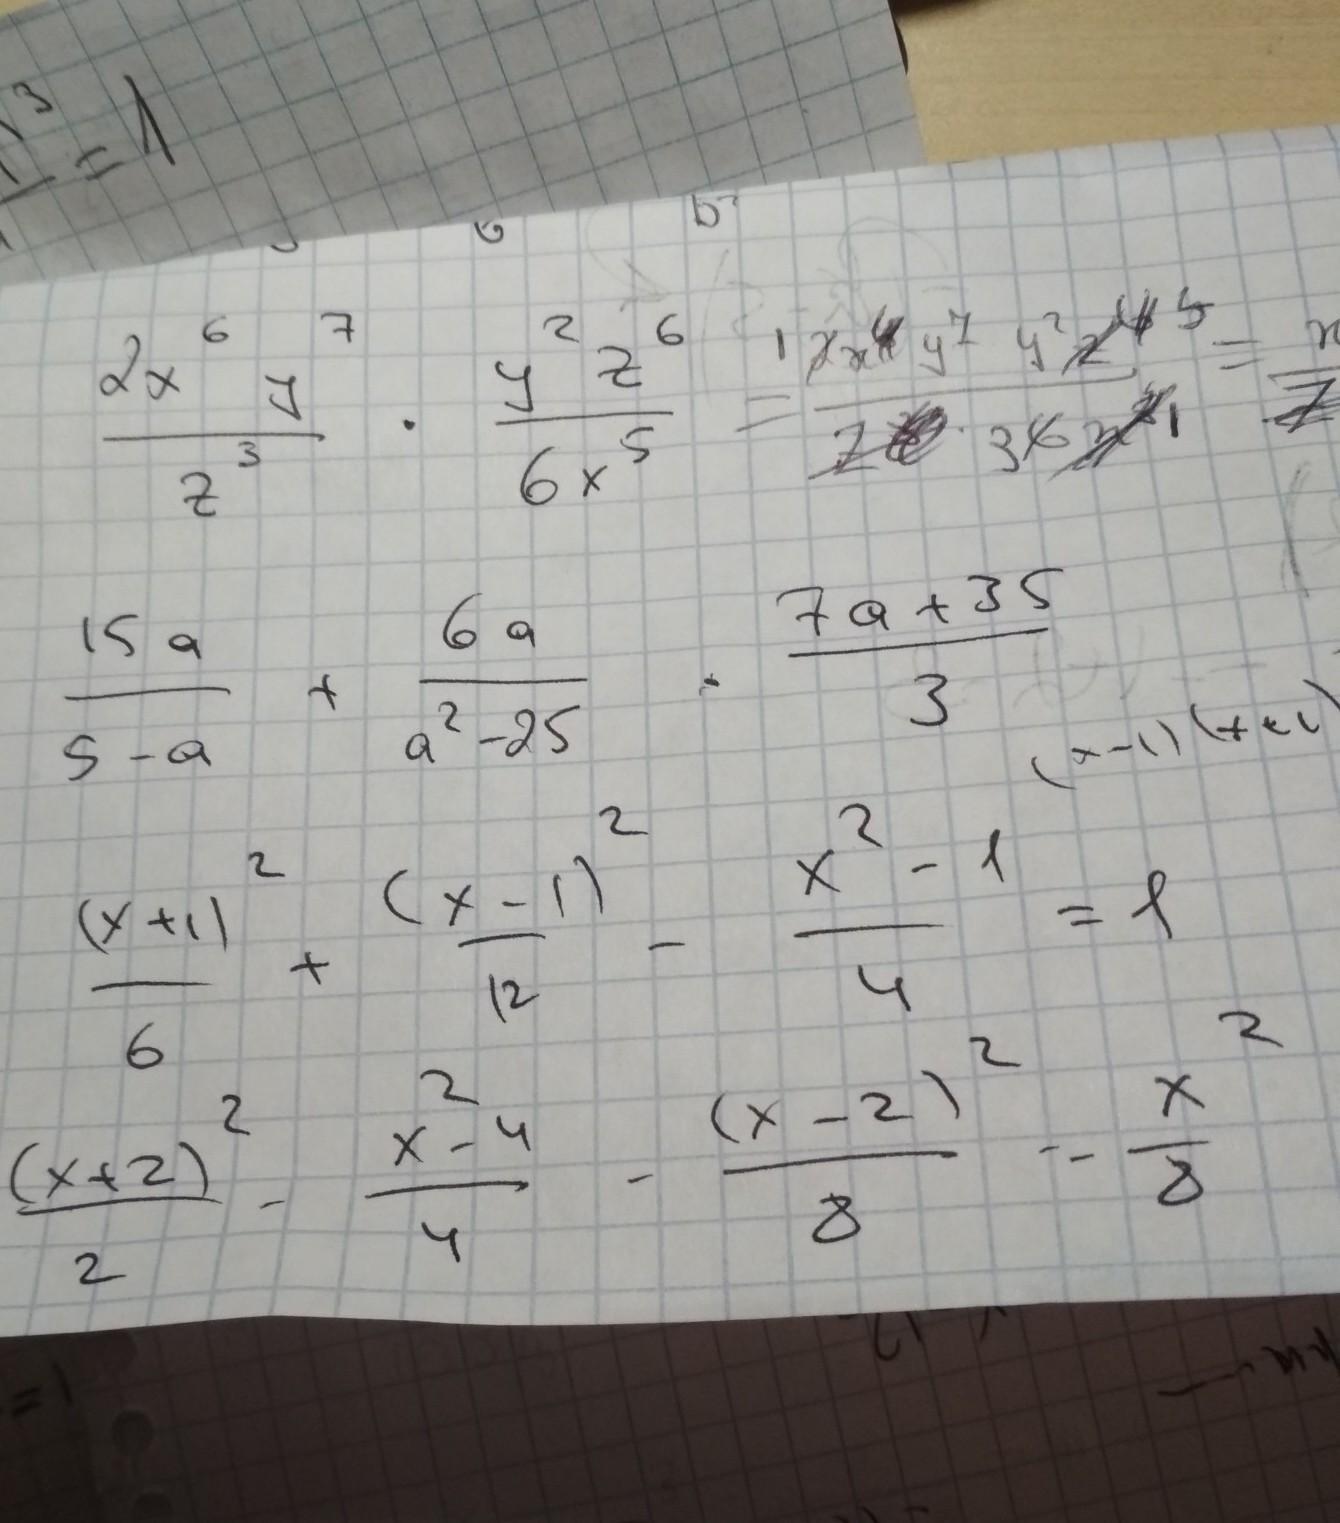 = 1
2x⁶y⁷/z³ · y²z⁶/6x⁵ =
15a/(5-a) + 6a/(a²-25) · (7a+35)/3
(x-1)(x+1)
(x+1)²/6 + (x-1)²/12 - (x²-1)/4 = 1
(x+2)²/2 - (x²-4)/4 - (x-2)²/8 -- x²/8
= 1